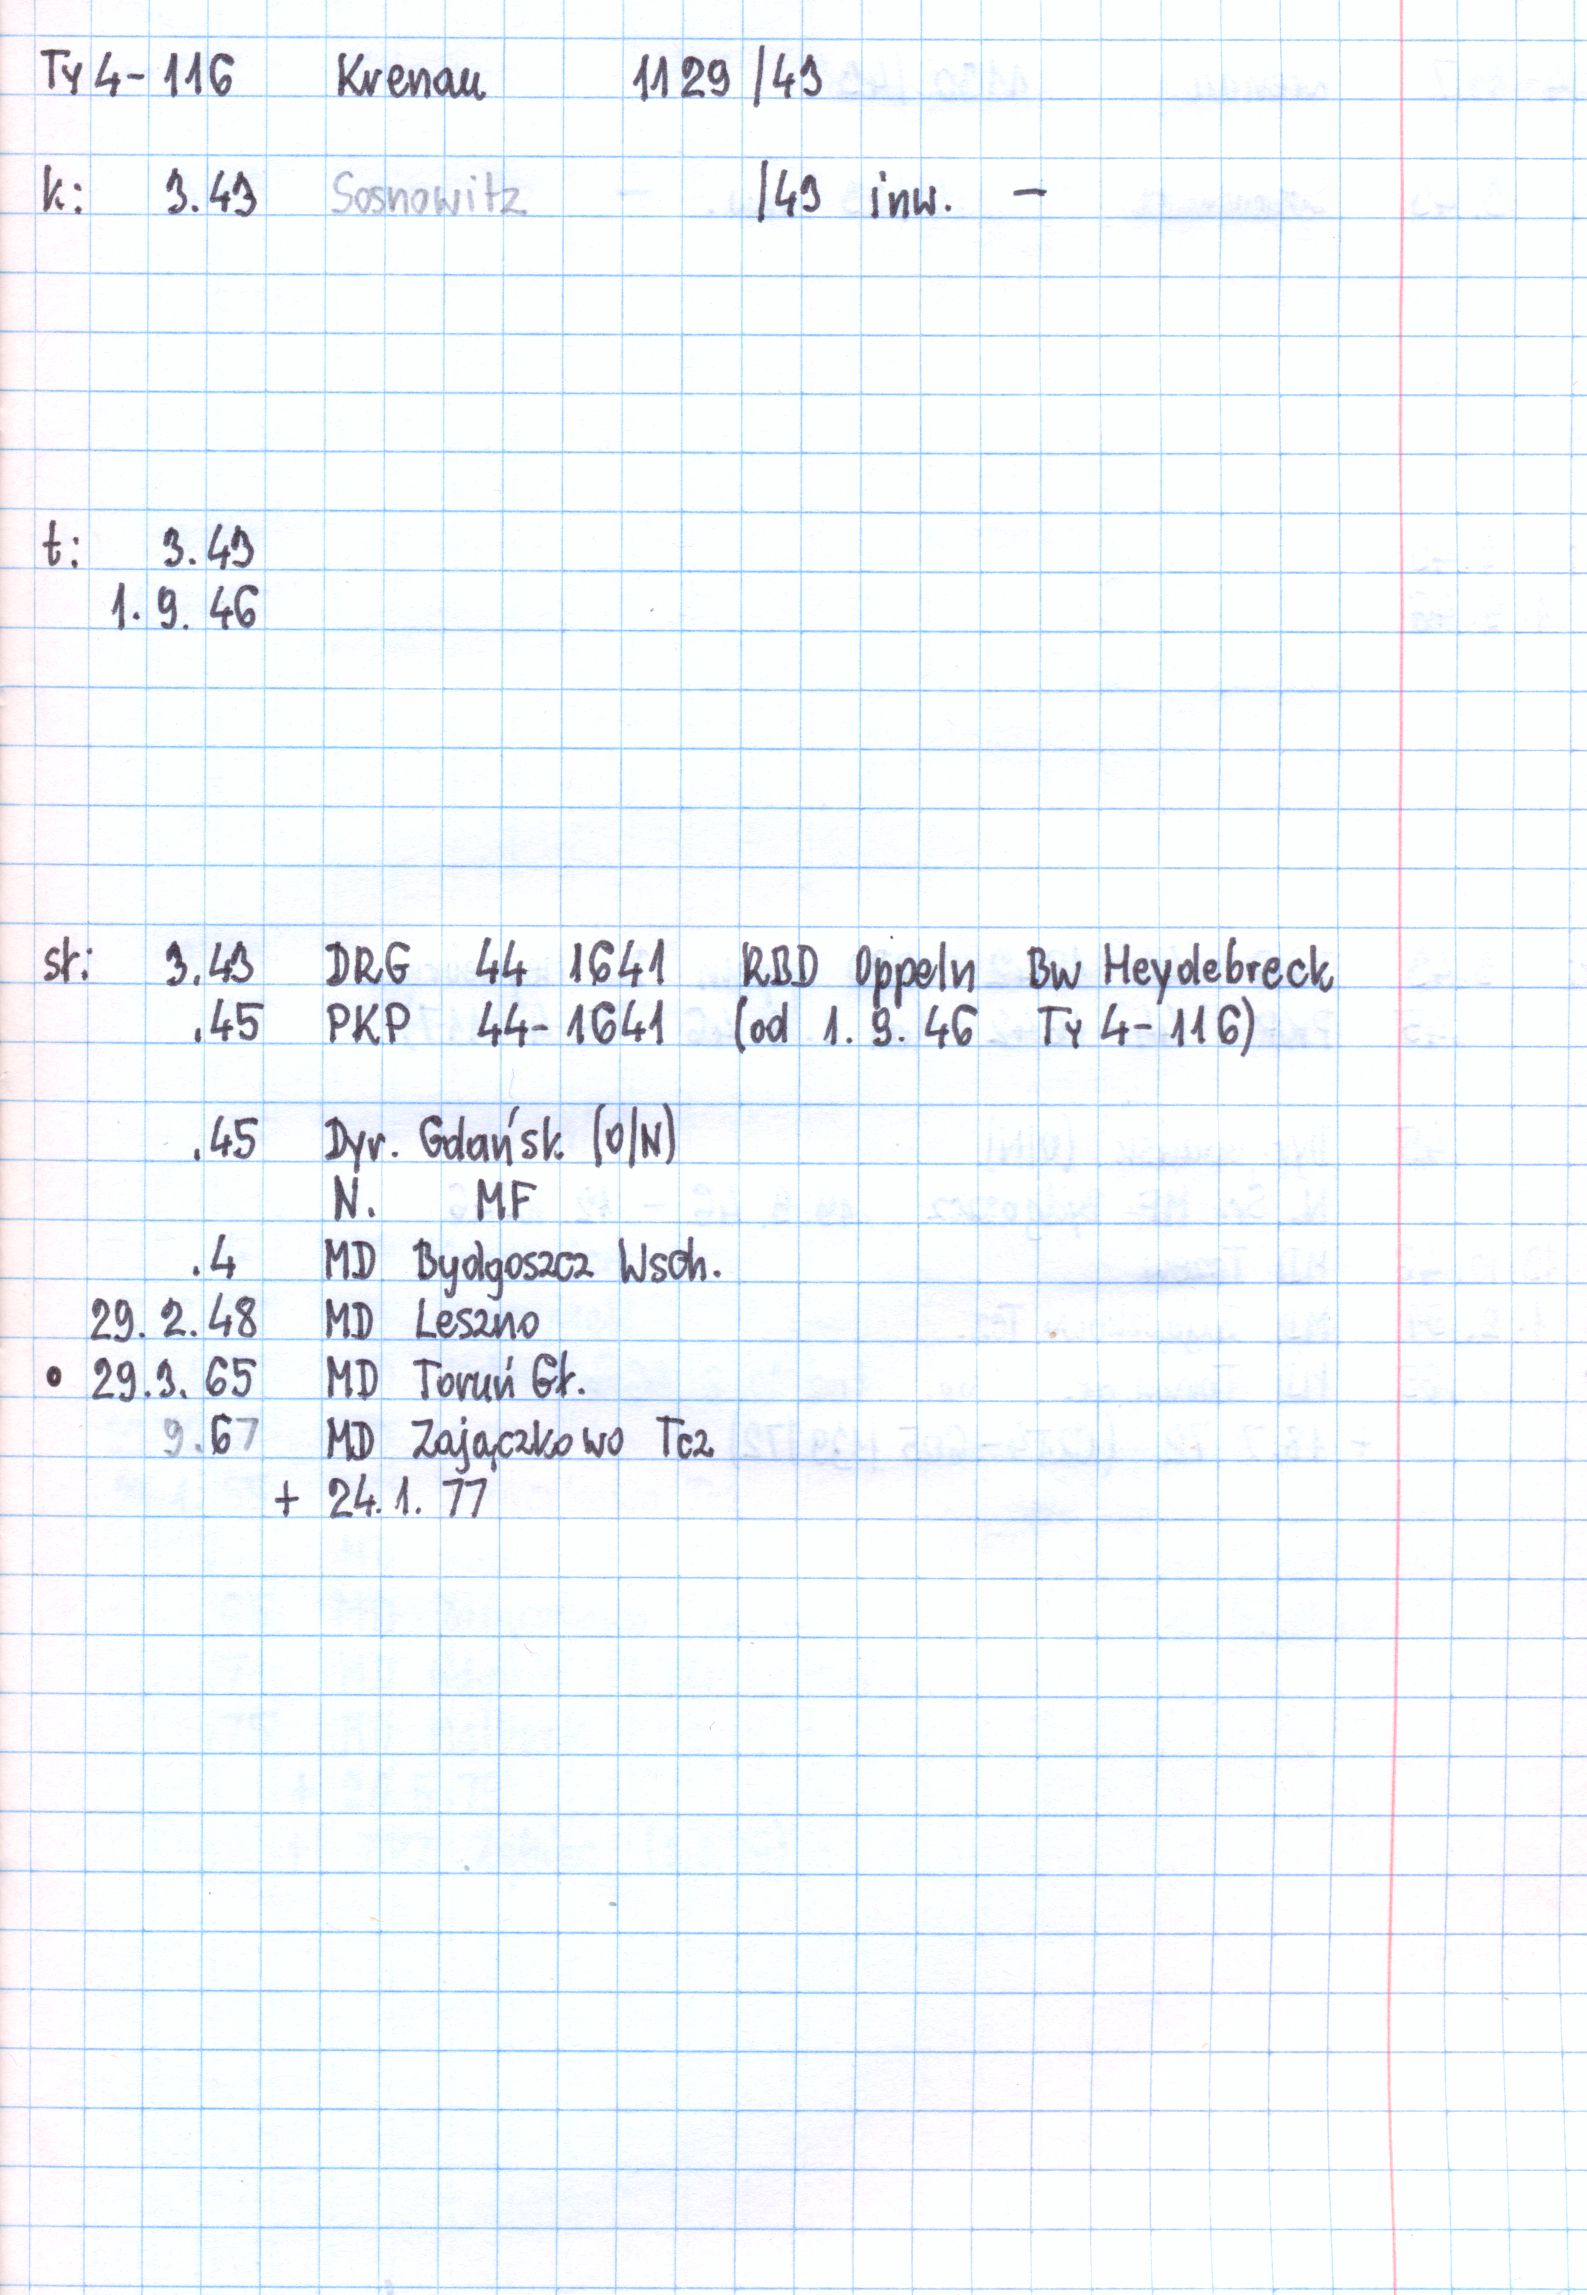 Ty 4-116 Krenau 1129 /43
k: 3.43 Sosnowitz /43 inw. -
t: 3.43
1.9.46
st: 3.43 DRG 44 1641 RBD Oppeln Bw Heydebreck
.45 PKP 44-1641 (od 1.9.46 Ty 4-116)
.45 Dyr. Gdańsk (O/N)
N. MF
.4 MD Bydgoszcz Wsch.
29.2.48 MD Leszno
• 29.3.65 MD Toruń Gł.
9.67 MD Zajączkowo Tcz
+ 24.1.77